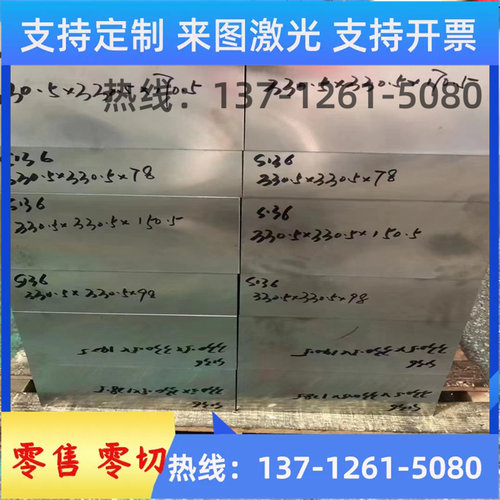 支持定制 来图激光 支持开票
热线：137-1261-5080
S136
330.5×330.5×78
S136
330.5×330.5×78
S136
330.5×330.5×150.5
S136
330.5×330.5×150.5
S136
330.5×330.5×98
S136
330.5×330.5×98
零售 零切
热线：137-1261-5080